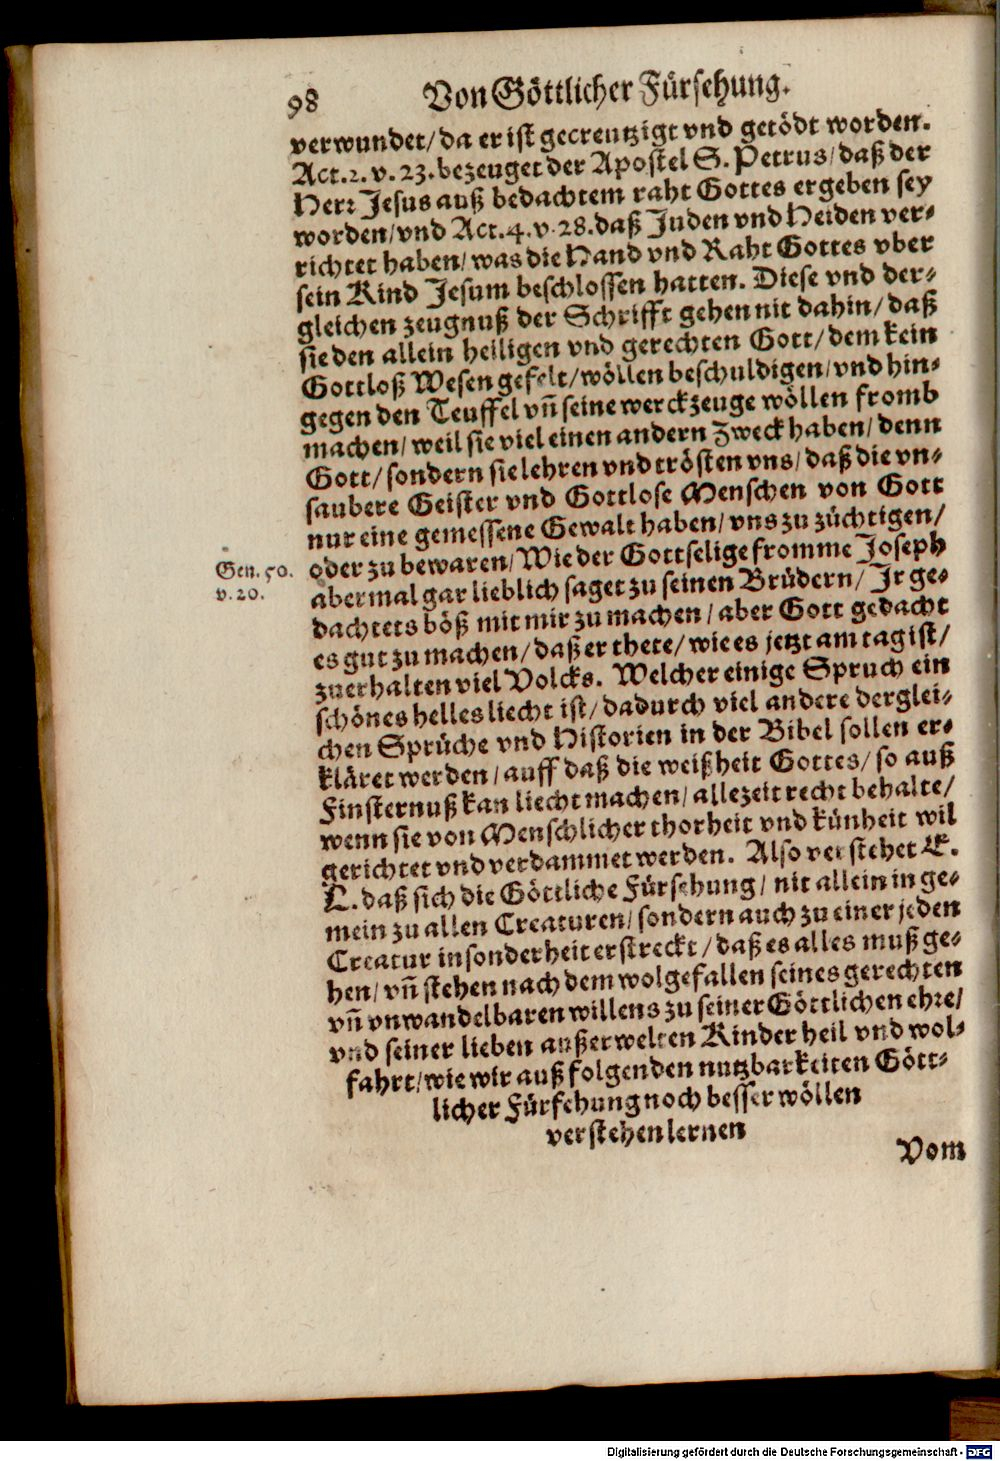 98 Von Göttlicher Fürsehung.
verwundet/da er ist gecreutzigt vnd getödt worden.
Act.2.v.23.bezeuget der Apostel S. Petrus/daß der
Herr Jesus auß bedachtem raht Gottes ergeben sey
worden/vnd Act.4.v.28.daß Juden vnd Heiden ver-
richtet haben/was die Hand vnd Raht Gottes vber
sein Kind Jesum beschlossen hatten. Diese vnd der-
gleichen zeugnuß der Schrifft gehen nit dahin/daß
sie den allein heiligen vnd gerechten Gott/dem kein
Gottloß Wesen gefelt/wöllen beschuldigen/vnd hin-
gegen den Teuffel vñ seine werckzeuge wöllen fromb
machen/weil sie viel einen andern Zweck haben/denn
Gott/sondern sie lehren vnd trösten vns/daß die vn-
saubere Geister vnd Gottlose Menschen von Gott
nur eine gemessene Gewalt haben/vns zu züchtigen/
Gen.50.
v.20.
oder zu bewaren/Wie der Gottselige fromme Joseph
abermal gar lieblich saget zu seinen Brüdern/Jr ge-
dachtets böß mit mir zu machen/aber Gott gedacht
es gut zu machen/daß er thete/wie es jetzt am tag ist/
zuerhalten viel Volcks. Welcher einige Spruch ein
schönes helles liecht ist/dadurch viel andere derglei-
chen Sprüche vnd Historien in der Bibel sollen er-
kläret werden/auff daß die weißheit Gottes/so auß
Finsternuß kan liecht machen/allezeit recht behalte/
wenn sie von Menschlicher thorheit vnd künheit wil
gerichtet vnd verdammet werden. Also verstehet E.
L.daß sich die Göttliche Fürsehung/nit allein in ge-
mein zu allen Creaturen/sondern auch zu einer jeden
Creatur insonderheit erstreckt/daß es alles muß ge-
hen/vñ stehen nach dem wolgefallen seines gerechten
vñ vnwandelbaren willens zu seiner Göttlichen ehre/
vnd seiner lieben außerwelten Kinder heil vnd wol-
fahrt/wie wir auß folgenden nutzbarkeiten Gött-
licher Fürsehung noch besser wöllen
verstehen lernen
Vom
Digitalisierung gefördert durch die Deutsche Forschungsgemeinschaft - DFG